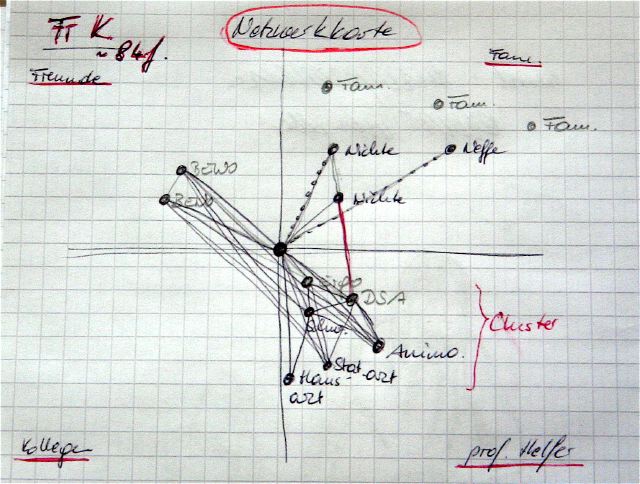 Fr K.
Netzwerkkarte
~ 84 j.
Fam.
Freunde
Fam.
Fam.
Fam.
Nichte
Neffe
BEWO
BEWO
Nichte
DSA
Cluster
Animo.
Stat.
arzt
Haus-
arzt
Kollegen
prof. Helfer